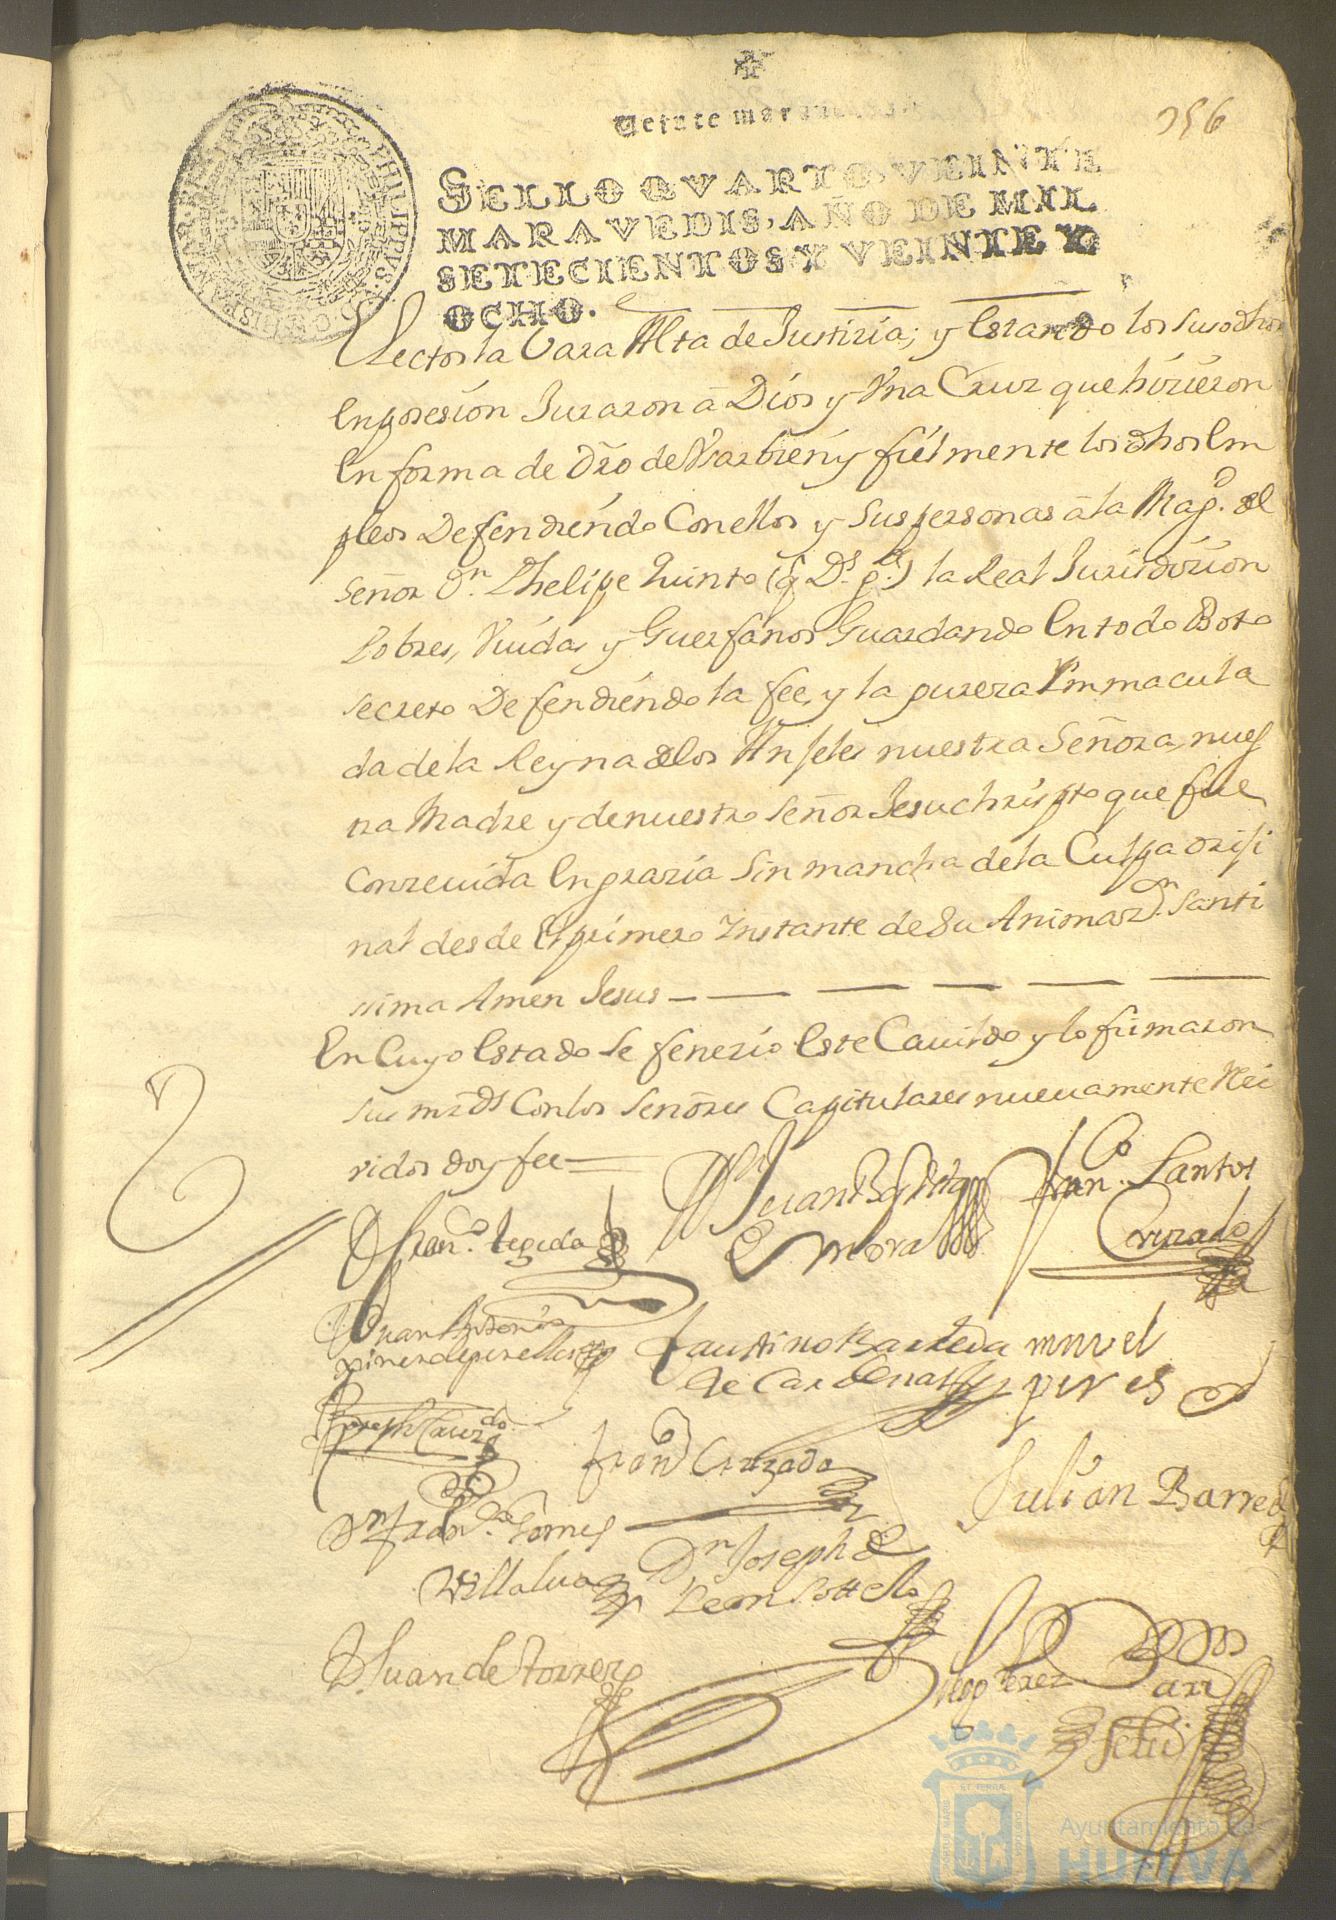 356
Veinte marauedis
SELLO QVARTO, VEINTE
MARAVEDIS, AÑO DE MIL
SETECIENTOS Y VEINTE Y
OCHO.
PHILIPPVS
HISPANIAR
la Vara Alta de Justizia; y estando los susodhos
en posesion Juraron ã Dios y Vna Cruz que hizieron
en forma de dro de Vsar bien y fielmente los dhos Em
pleos Defendiendo con ellos y sus personas ã la Magd. del
señor Dn. Phelipe Quinto (q Ds. ge.) la Real Jurisdizion
Pobres, Viudas y Guerfanos Guardando en todo Boto
secreto Defendiendo la fee, y la pureza Ymmacula
da de la Reyna de los Anjeles nuestra Señora, nues
tra Madre y de nuestro Señor Jesuchripto que fue
conzeuida en grazia sin mancha de la Culpa oriji
nal desde el primero Instante de su Animazn. Santi
sima Amen Jesus
En Cuyo estado se fenezio este Cauildo y lo firmaron
sus mrds con los Señores Capitulares nueuamente Rezi
vidos doy fee
Dn Juan Bapta
de Mora
Franco. Santos
Cruzado
D Franco. tegeda
Juan Antonio
Faustino Barreda
de Cardenas
muel
peres
Joseph Cruzdo
Frano Cruzado
Julian Barreda
Dn Franco. Gomes
Villalua
Dn Joseph de
Leon Sottelo
D Juan de torres
Diego Perez
Ayuntamiento de
HUELVA